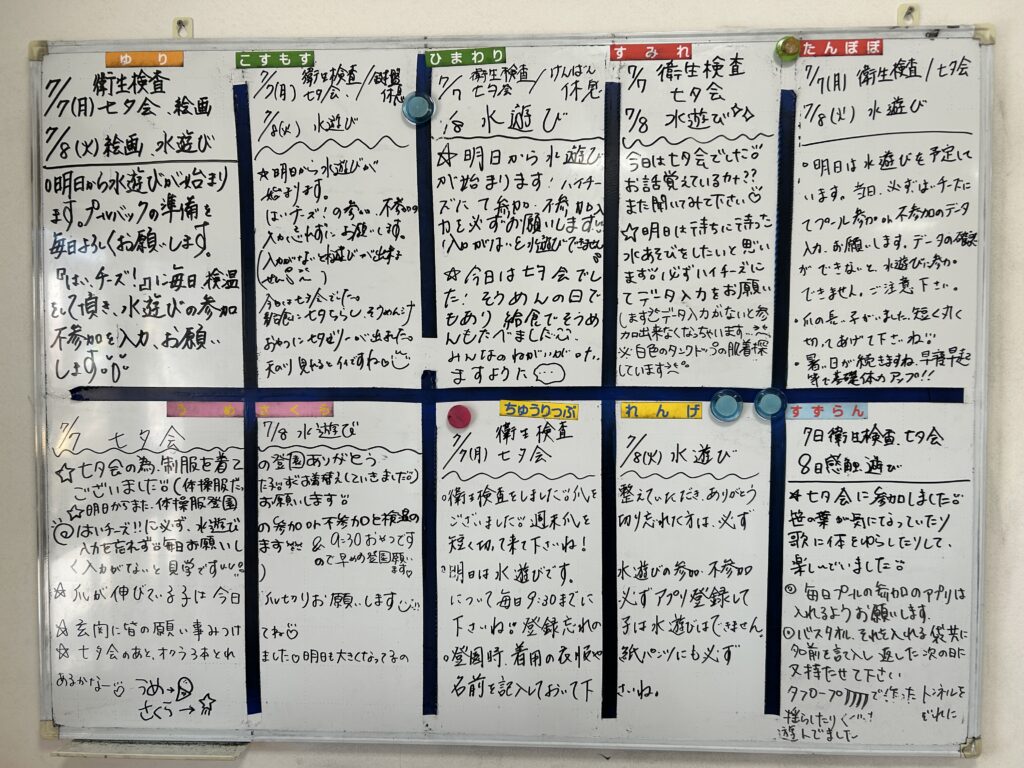 ゆり
7/7(月) 衛生検査
七夕会、絵画
7/8(火) 絵画、水遊び
○明日から水遊びが始まり
ます。プールバックの準備を
毎日よろしくお願いします。
『はい、チーズ!』に毎日、検温
をして頂き、水遊びの参加
不参加を入力、お願い
します。
こすもす
7/7(月) 衛生検査/
七夕会、 休息
7/8(火) 水遊び
☆明日から水遊びが
始まります。
はいチーズ!の参加、不参加の
入力を忘れずにお願いします。
(入力がないと水遊びが出来ま
せん
今日は七夕会でした。
給食に七夕ちらし、そうめん汁
おやつに七夕ゼリーが出ました。
天の川見れるとイイですね
ひまわり
7/7 衛生検査/けんばん
七夕会 休息
7/8 水遊び
☆明日から水遊び
が始まります!ハイチー
ズにて参加、不参加入
力を必ずお願いします
(入力がないと水遊びできません
☆今日は七夕会でし
た!そうめんの日で
もあり給食でそうめ
んもたべました
みんなのねがいがかない
ますように
すみれ
7/7 衛生検査
七夕会
7/8 水遊び☆☆
今日は七夕会でした
お話覚えているかな??
また聞いてみて下さい♡
☆明日は待ちに待った
水あそびをしたいと思い
ます 必ずハイチーズに
てデータ入力をお願い
します データ入力がないと参
加出来なくなっちゃいます…
※白色のタンクトップの肌着探
しています
たんぽぽ
7/7(月) 衛生検査/七夕会
7/8(火) 水遊び
・明日は水遊びを予定して
います。当日、必ずはいチーズに
てプール参加or不参加のデータ
入力、お願いします。データの確認
ができないと、水遊びに参加
できません。ご注意下さい。
・爪の長い子がいました。短く丸く
切ってあげて下さいね
・暑い日が続きますね。早寝早起
等で基礎体力アップ!!
うめ さくら
7/7 七夕会 7/8 水遊び
☆七夕会の為、制服を着ての登園ありがとう
ございました(体操服だった子はお着替えしていきました)
☆明日からまた、体操服登園お願いします
◎はいチーズ!!に必ず、水遊びの参加or不参加と検温の
入力を忘れず毎日お願いします & 9:30おやつです
ので早めの登園願います
く入力がないと見学です )
☆爪が伸びている子は今日爪切りお願いします
☆玄関に皆の願い事みつけてね♡
☆七夕会のあと、オクラ3本とれました♡明日も大きくなってるの
あるかなー
うめ→
さくら→☆
ちゅうりっぷ れんげ
7/7(月) 衛生検査
七夕会
7/8(火) 水遊び
○衛生検査をしました 爪を整えていただき、ありがとう
ございました 週末爪を切り忘れた方は、必ず
短く切って来て下さいね!
○明日は水遊びです。水遊びの参加・不参加
について毎日9:30までに必ずアプリ登録して
下さいね 登録忘れの子は水遊びはできません。
○登園時、着用の衣服や紙パンツにも必ず
名前を記入しておいて下さいね。
すずらん
7日衛生検査、七夕会
8日感触遊び
☆七夕会に参加しました
笹の葉が気になっていたり
歌に体をゆらしたりして、
楽しんでいました
◎毎日プールの参加のアプリは
入れるようお願いします。
◎バスタオル、それを入れる袋共に
名前を記入し返した次の日に
又持たせて下さい
タフロープで作ったトンネルを
揺らしたりくぐったり それに
遊んでました